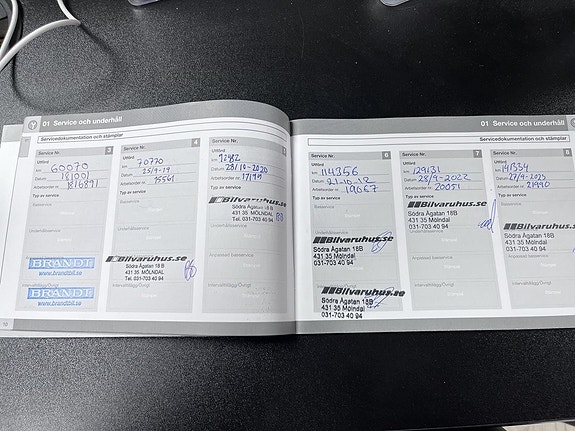 01 Service och underhåll
Servicedokumentation och stämplar
Service Nr. 3
Utförd
km 60070
Datum 181001
Arbetsorder nr. 1816891
Typ av service
BRANDT
www.brandtbil.se
Intervalltillägg/Övrigt
BRANDT
www.brandtbil.se
10
Service Nr. 4
Utförd
km 70770
Datum 25/9-19
Arbetsorder nr. 15561
Typ av service
Basservice
Underhållsservice
Bilvaruhus.se
Södra Ågatan 18 B
431 35 MÖLNDAL
Tel. 031-703 40 94
Intervalltillägg/Övrigt
Service Nr. 5
Utförd
km
Datum 28/10-2020
Arbetsorder nr. 17199
Typ av service
Bilvaruhus.se
Södra Ågatan 18 B
431 35 MÖLNDAL
Tel. 031-703 40 94
Underhållsservice
Intervalltillägg/Övrigt
01 Service och underhåll
Servicedokumentation och stämplar
Service Nr. 6
Utförd
km 114356
Datum
Arbetsorder nr. 19067
Typ av service
Basservice
Underhållsservice
Bilvaruhus.se
Södra Ågatan 18B
431 35 Mölndal
031-703 40 94
Intervalltillägg/Övrigt
Bilvaruhus.se
Södra Ågatan 18B
431 35 Mölndal
031-703 40 94
Service Nr. 7
Utförd
km 129131
Datum 28/9-2022
Arbetsorder nr. 20051
Typ av service
Basservice
Underhållsservice
Bilvaruhus.se
Södra Ågatan 18B
431 35 Mölndal
031-703 40 94
Intervalltillägg/Övrigt
Service Nr. 8
Utförd
km 141334
Datum 27/9-2023
Arbetsorder nr. 21990
Typ av service
Basservice
Bilvaruhus.se
Södra Ågatan 18B
431 35 Mölndal
031-703 40 94
Anpassad basservice
Intervalltillägg/Övrigt